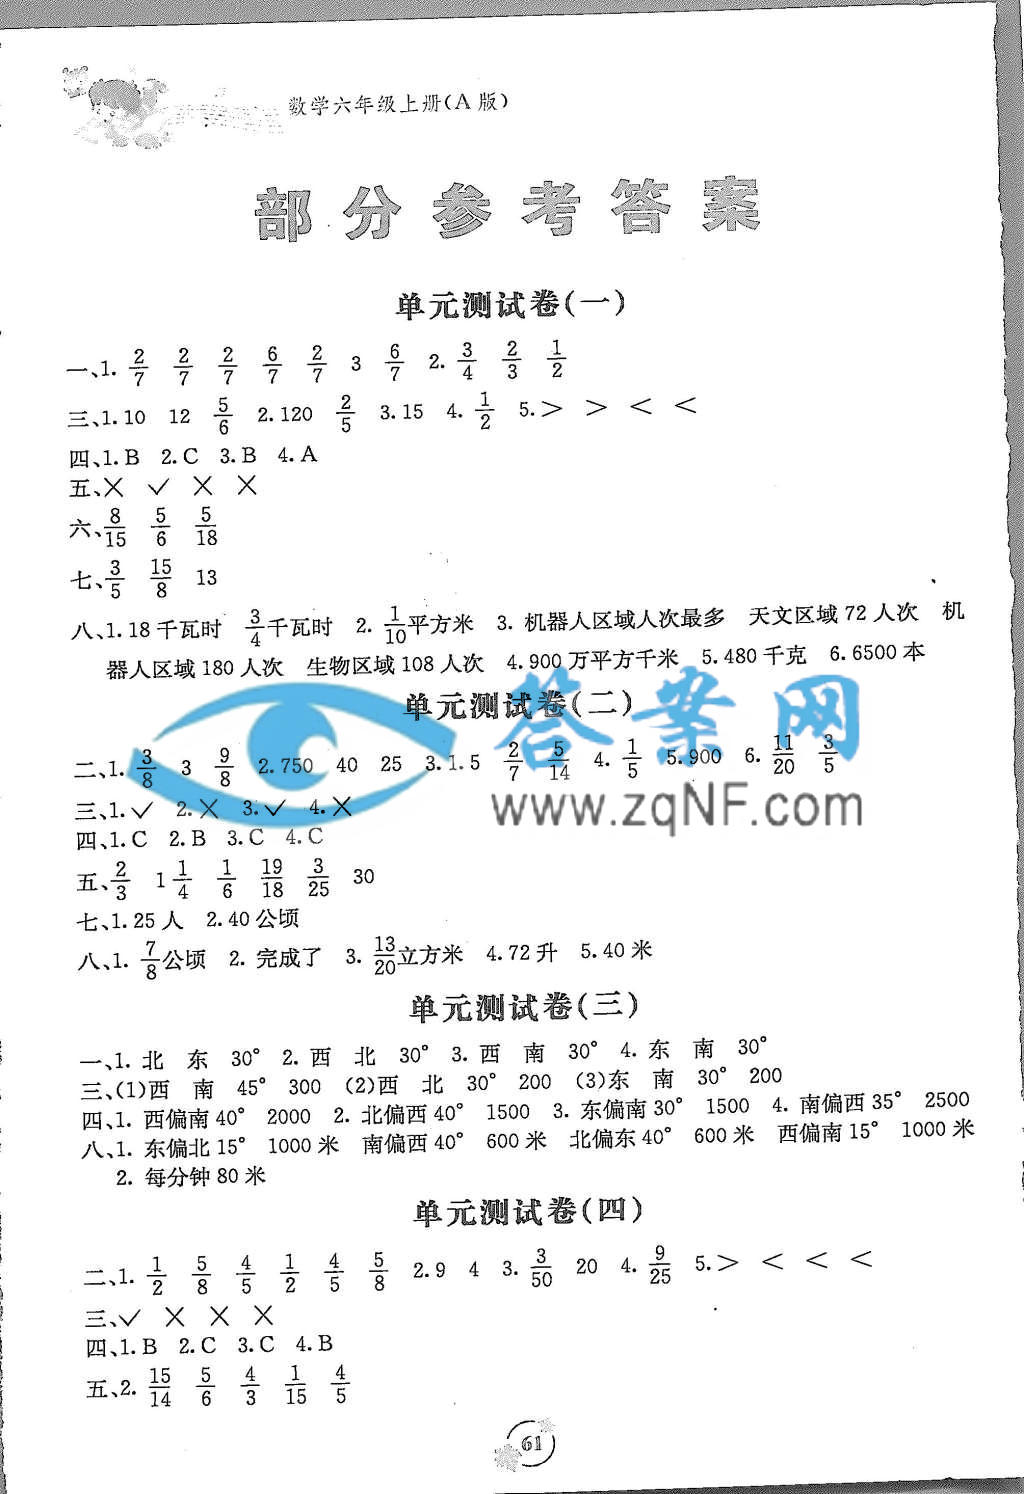 数学六年级上册(A版)
部分参考答案
单元测试卷(一)
一、1. 2/7 2/7 2/7 6/7 2/7 3 6/7 2. 3/4 2/3 1/2
三、1.10 12 5/6 2.120 2/5 3.15 4. 1/2 5.> > < <
四、1.B 2.C 3.B 4.A
五、× √ × ×
六、8/15 5/6 5/18
七、3/5 15/8 13
八、1.18千瓦时 3/4千瓦时 2. 1/10平方米 3. 机器人区域人次最多 天文区域72人次 机
器人区域180人次 生物区域108人次 4.900万平方千米 5.480千克 6.6500本
单元测试卷(二)
二、1. 3/8 3 9/8 2.750 40 25 3.1.5 2/7 5/14 4. 1/5 5.900 6. 11/20 3/5
三、1.√ 2.× 3.√ 4.×
四、1.C 2.B 3.C 4.C
五、2/3 1 1/4 1/6 19/18 3/25 30
七、1.25人 2.40公顷
八、1. 7/8公顷 2. 完成了 3. 13/20立方米 4.72升 5.40米
单元测试卷(三)
一、1. 北 东 30° 2. 西 北 30° 3. 西 南 30° 4. 东 南 30°
三、(1)西 南 45° 300 (2)西 北 30° 200 (3)东 南 30° 200
四、1. 西偏南40° 2000 2. 北偏西40° 1500 3. 东偏南30° 1500 4. 南偏西35° 2500
八、1. 东偏北15° 1000米 南偏西40° 600米 北偏东40° 600米 西偏南15° 1000米
2. 每分钟80米
单元测试卷(四)
二、1. 1/2 5/8 4/5 1/2 4/5 5/8 2.9 4 3. 3/50 20 4. 9/25 5.> < < <
三、√ × × ×
四、1.B 2.C 3.C 4.B
五、2. 15/14 5/6 4/3 1/15 4/5
61
答案网
www.zqNF.com